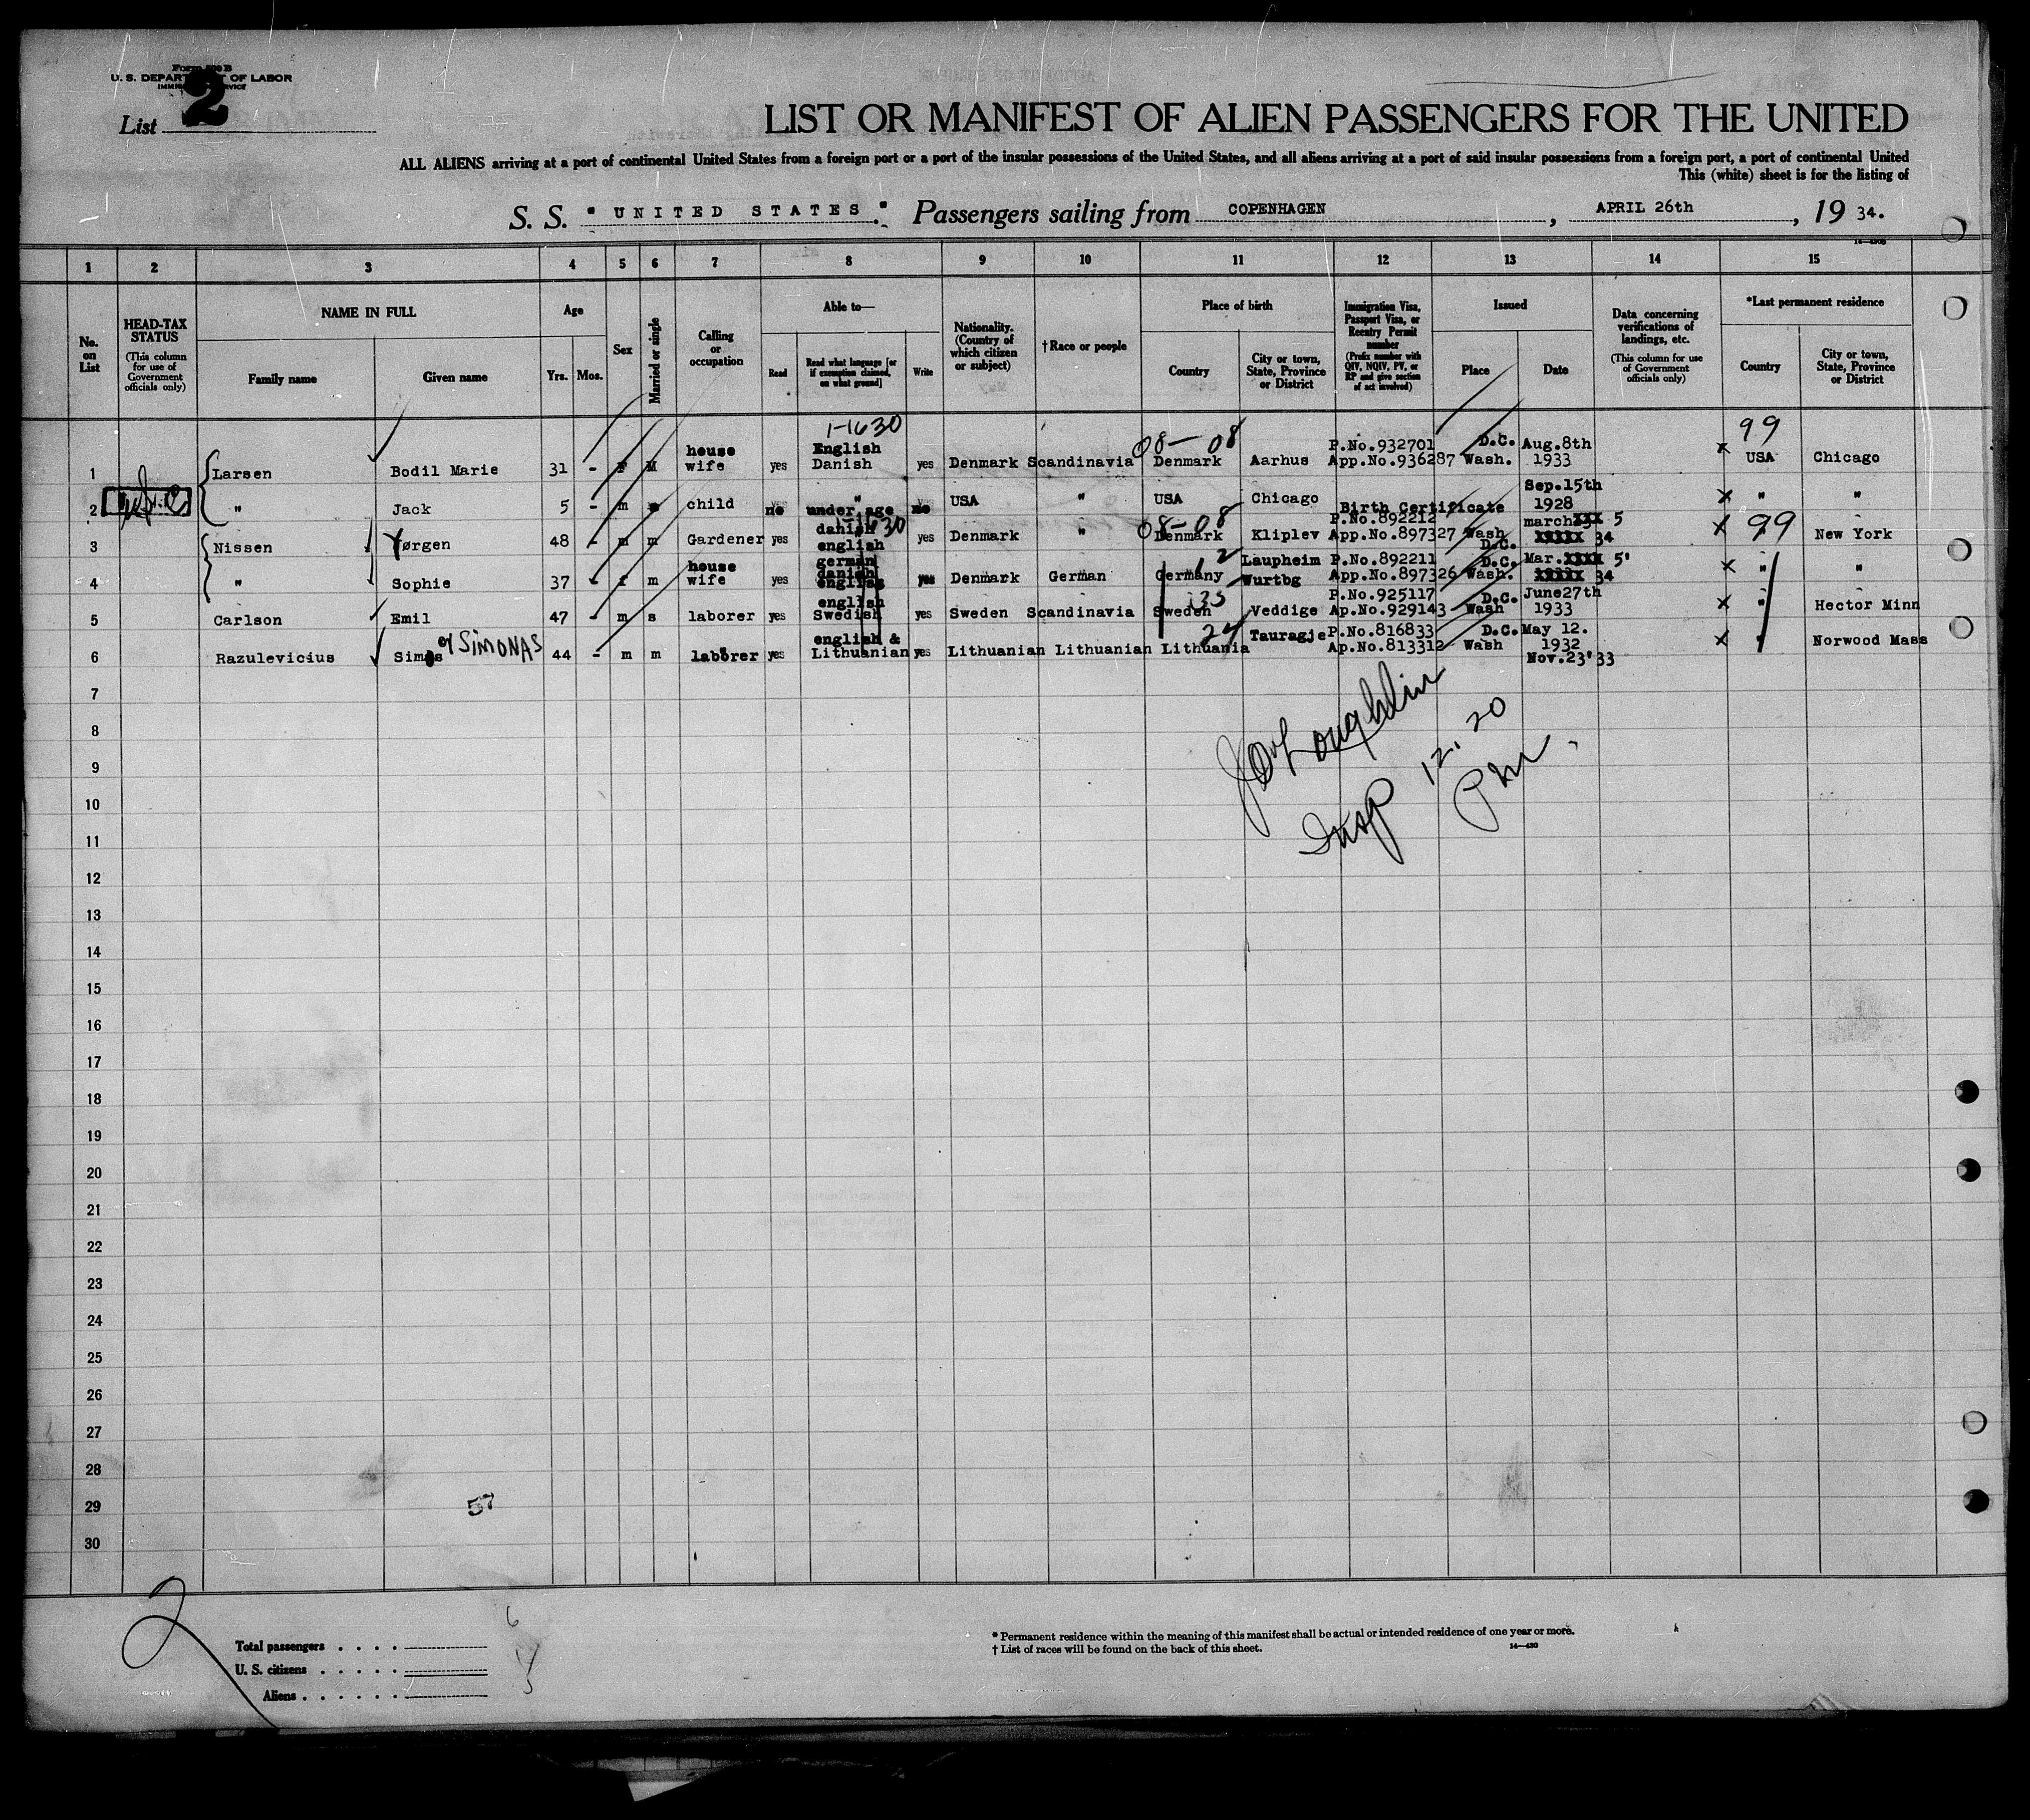 U. S. DEPARTMENT OF LABOR
List 2
LIST OR MANIFEST OF ALIEN PASSENGERS FOR THE UNITED
ALL ALIENS arriving at a port of continental United States from a foreign port or a port of the insular possessions of the United States, and all aliens arriving at a port of said insular possessions from a foreign port, a port of continental United
This (white) sheet is for the listing of
S. S. "UNITED STATES." Passengers sailing from COPENHAGEN, APRIL 26th, 19 34.
1 2 3 4 5 6 7 8 9 10 11 12 13 14 15
No. on List
HEAD-TAX STATUS (This column for use of Government officials only)
NAME IN FULL
Family name
Given name
Age
Yrs. Mos.
Sex
Married or single
Calling or occupation
Able to—
Read
Read what language [or if exemption claimed, on what ground]
Write
Nationality. (Country of which citizen or subject)
†Race or people
Place of birth
Country
City or town, State, Province or District
Immigration Visa, Passport Visa, or Reentry Permit number (Prefix number with QIV, NQIV, PV, or RP and give section of act involved)
Issued
Place
Date
Data concerning verifications of landings, etc. (This column for use of Government officials only)
*Last permanent residence
Country
City or town, State, Province or District
1-1630 08-08 99
1 Larsen Bodil Marie 31 - F M house wife yes English Danish yes Denmark Scandinavia Denmark Aarhus P.No.932701 App.No.936287 D.C. Wash. Aug.8th 1933 x USA Chicago
2 " Jack 5 - m child no under age no USA " USA Chicago Birth Certificate Sep.15th 1928 x " "
1630 08-08 99
3 Nissen Yørgen 48 - m m Gardener yes danish english yes Denmark " Denmark Kliplev P.No.892212 App.No.897327 Wash D.C. march xxx 5 xxxxx 34 x New York
12
4 " Sophie 37 - f m house wife yes german danish english yes Denmark German Germany Laupheim Wurtbg P.No.892211 App.No.897326 D.C. Wash. Mar.xxxx 5' xxxxx 34 x " "
35
5 Carlson Emil 47 - m s laborer yes english Swedish yes Sweden Scandinavia Sweden Veddige P.No.925117 Ap.No.929143 D.C. Wash June27th 1933 x " Hector Minn
24
6 Razulevicius Simas or SIMONAS 44 - m m laborer yes english & Lithuanian yes Lithuanian Lithuanian Lithuania Tauragje P.No.816833 Ap.No.813312 D.C. Wash May 12. 1932 Nov.23'33 x Norwood Mass
7
8
9
Insp 12.20 PM.
10
11
12
13
14
15
16
17
18
19
20
21
22
23
24
25
26
27
28
29
57
30
2
6
Total passengers
U. S. citizens
Aliens
* Permanent residence within the meaning of this manifest shall be actual or intended residence of one year or more.
† List of races will be found on the back of this sheet.
14—430